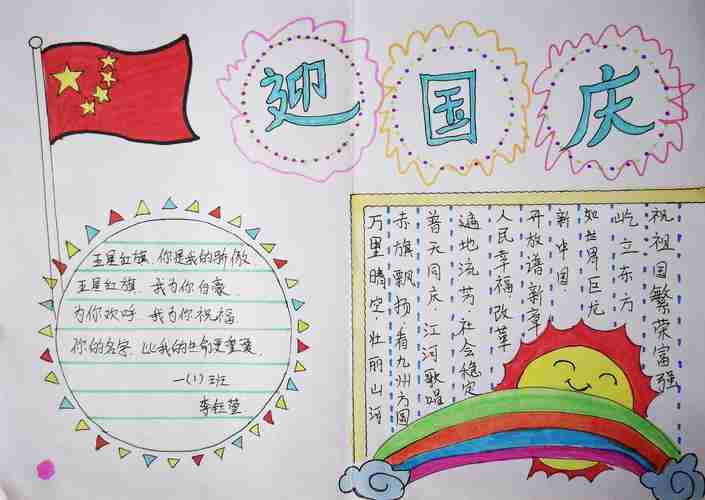 迎国庆
五星红旗 你是我的骄傲
五星红旗 我为你自豪
为你欢呼 我为你祝福
你的名字 比我的生命更重要
一(1)班
李钰莹
祝祖国繁荣富强
屹立东方
如世界巨龙
新中国
开放谱新章
人民幸福·改革
遍地流芳·社会稳定
普天同庆·江河歌唱
赤旗飘扬 看九州方圆
万里晴空 壮丽山河